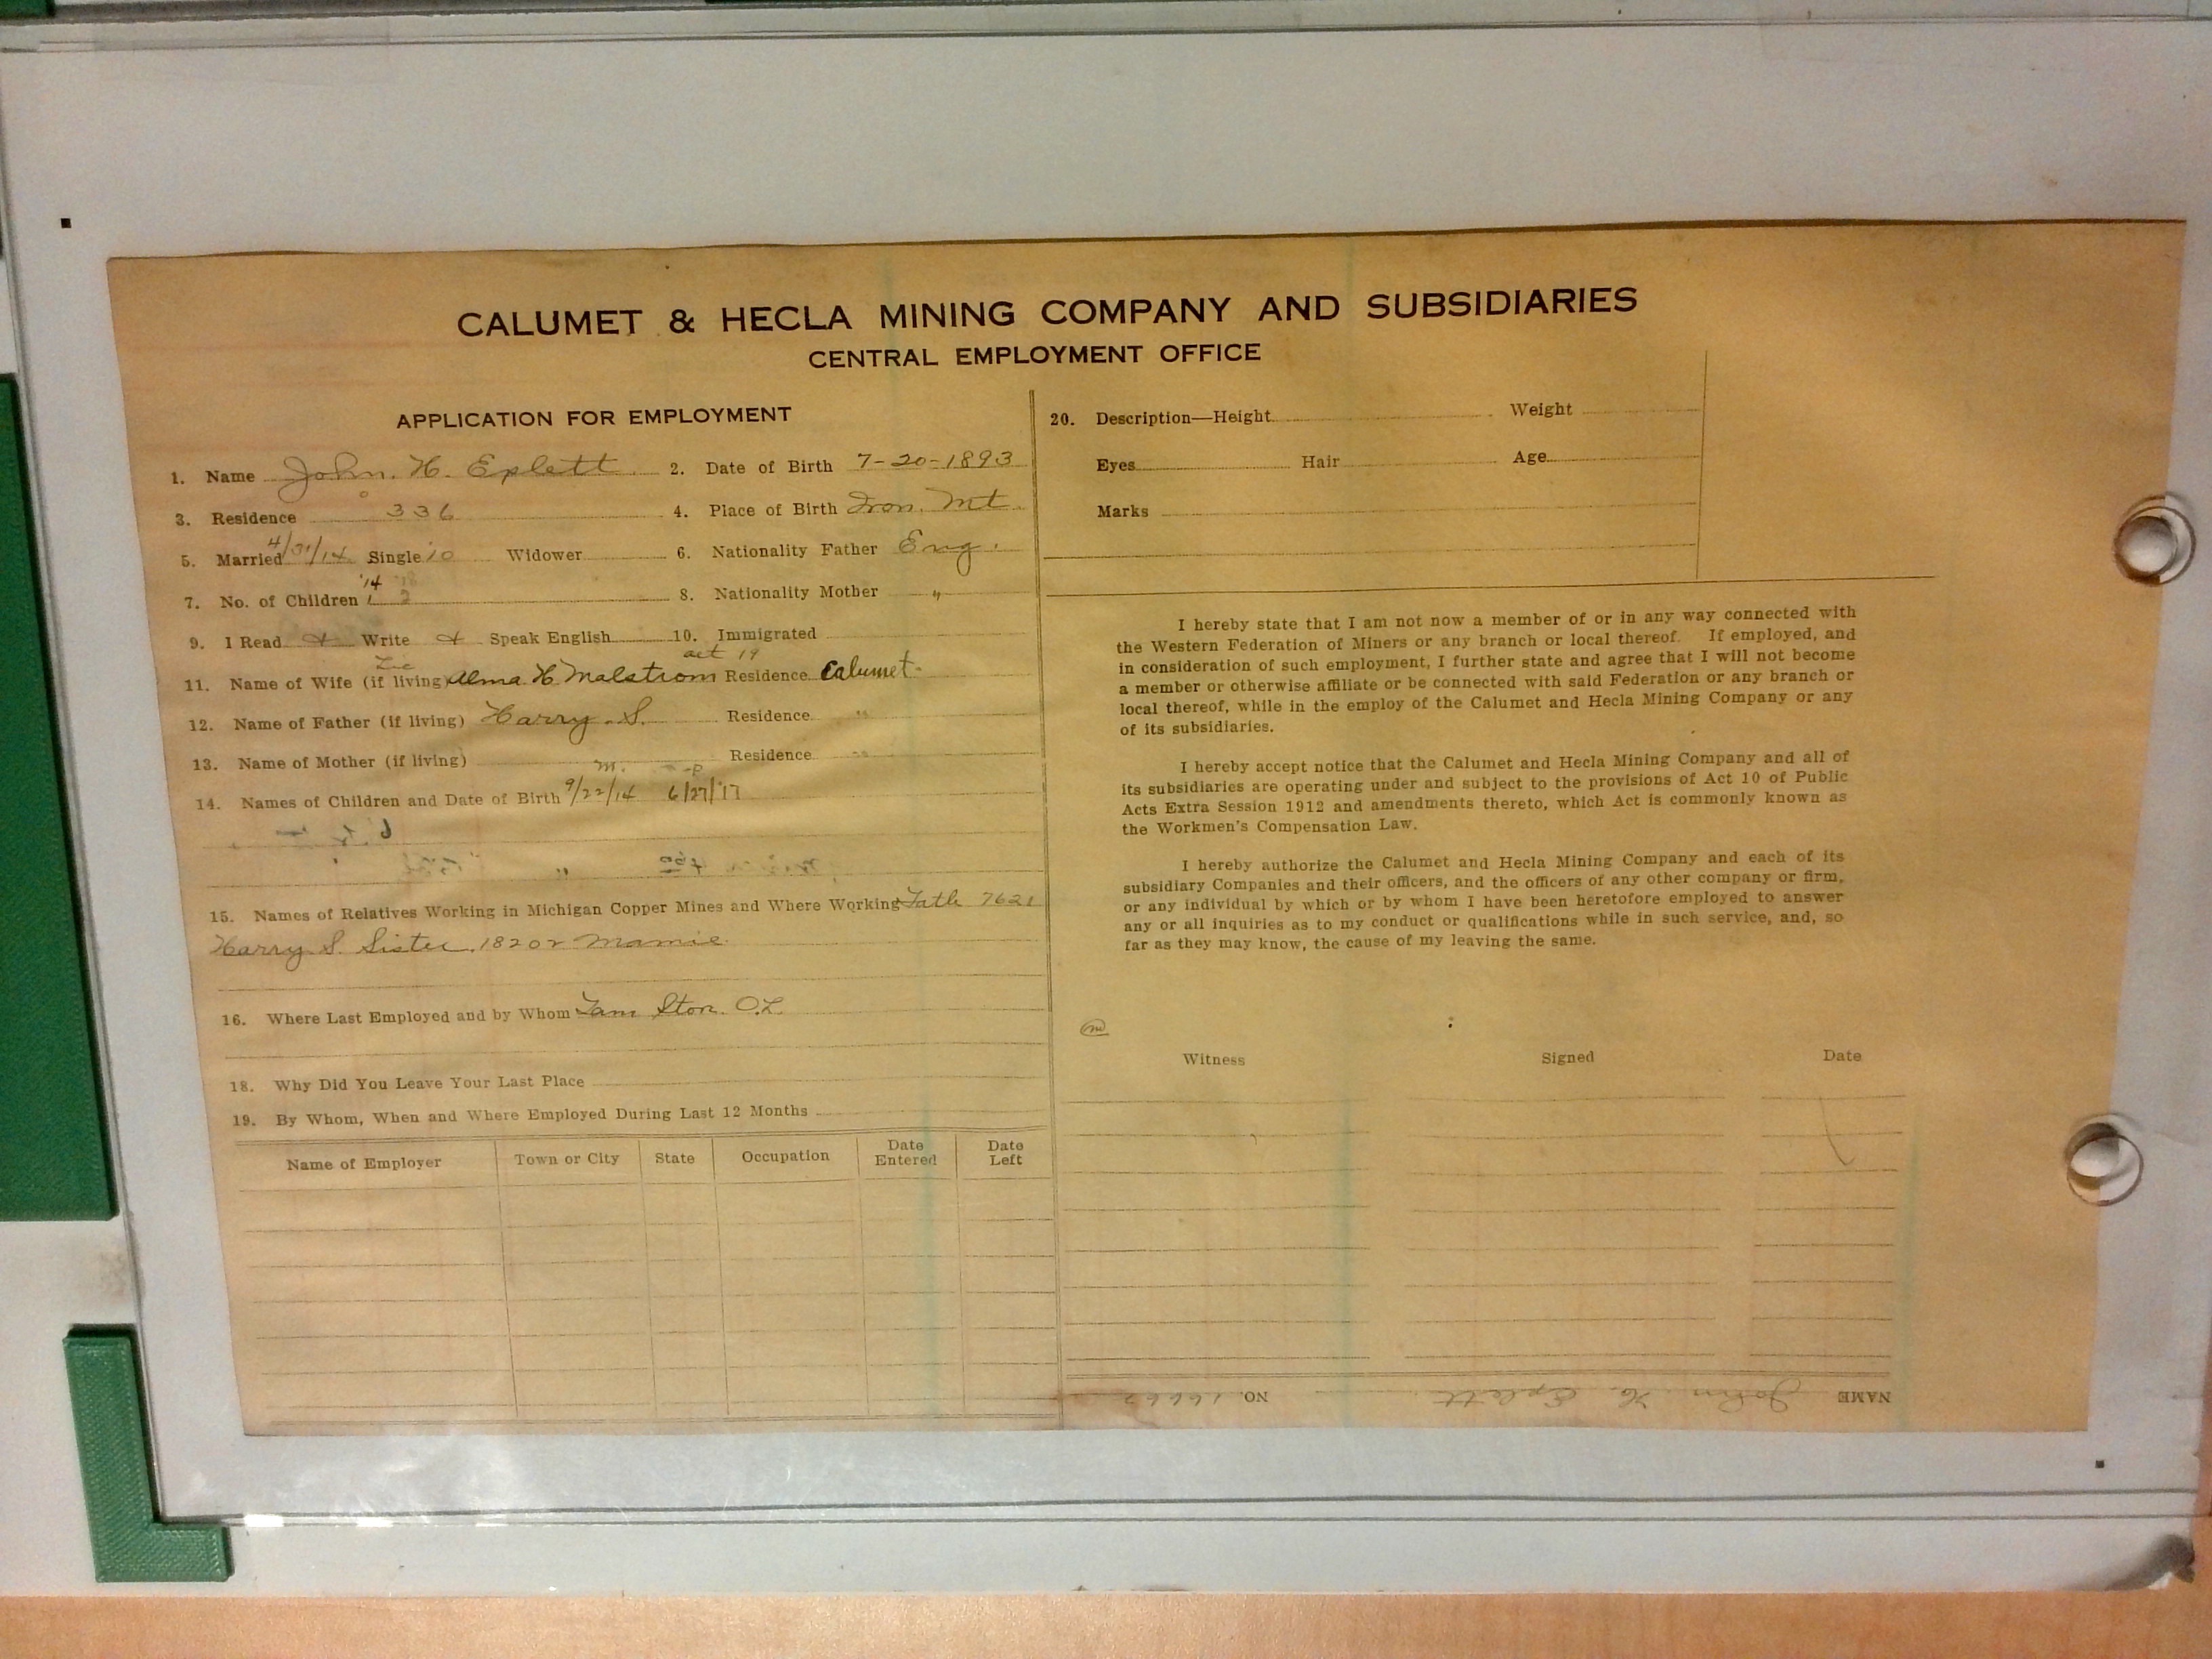 CALUMET & HECLA MINING COMPANY AND SUBSIDIARIES
CENTRAL EMPLOYMENT OFFICE
APPLICATION FOR EMPLOYMENT
1. Name John. H. Eplett 2. Date of Birth 7-20-1893
3. Residence 336 4. Place of Birth Iron. Mt.
5. Married 4/31/14 Single '10 Widower 6. Nationality Father Eng.
'14
7. No. of Children 1 2 8. Nationality Mother "
9. I Read Write Speak English 10. Immigrated
19
11. Name of Wife (if living) Alma H Malstrom Residence Calumet
12. Name of Father (if living) Harry S. Residence "
13. Name of Mother (if living) Residence "
m.
14. Names of Children and Date of Birth 9/22/14 6/27/17
15. Names of Relatives Working in Michigan Copper Mines and Where Working Fath 7621
Harry S. Sister 18202 Mamie
16. Where Last Employed and by Whom Tam Stor. O.L
18. Why Did You Leave Your Last Place
19. By Whom, When and Where Employed During Last 12 Months
Name of Employer Town or City State Occupation Date Entered Date Left
20. Description—Height Weight
Eyes Hair Age
Marks
I hereby state that I am not now a member of or in any way connected with
the Western Federation of Miners or any branch or local thereof. If employed, and
in consideration of such employment, I further state and agree that I will not become
a member or otherwise affiliate or be connected with said Federation or any branch or
local thereof, while in the employ of the Calumet and Hecla Mining Company or any
of its subsidiaries.
I hereby accept notice that the Calumet and Hecla Mining Company and all of
its subsidiaries are operating under and subject to the provisions of Act 10 of Public
Acts Extra Session 1912 and amendments thereto, which Act is commonly known as
the Workmen's Compensation Law.
I hereby authorize the Calumet and Hecla Mining Company and each of its
subsidiary Companies and their officers, and the officers of any other company or firm,
or any individual by which or by whom I have been heretofore employed to answer
any or all inquiries as to my conduct or qualifications while in such service, and, so
far as they may know, the cause of my leaving the same.
Witness Signed Date
NAME John H. Eplett NO. 16662